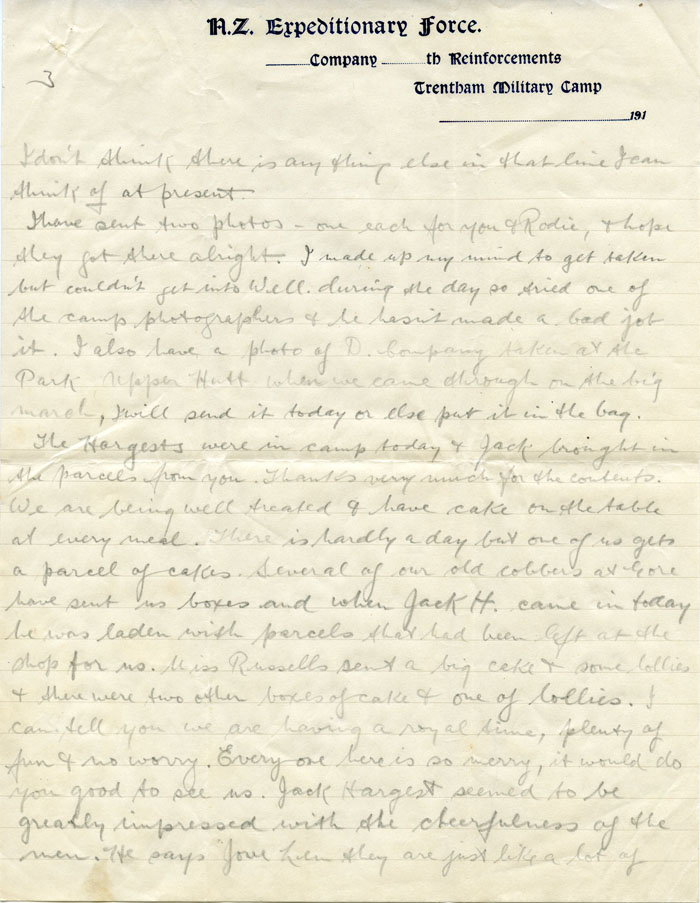 N.Z. Expeditionary Force.
______Company ______th Reinforcements
Trentham Military Camp
______191
3
I don't think there is any thing else in that line I can
think of at present.
I have sent two photos – one each for you & Rodie, & hope
they got there alright. I made up my mind to get taken
but couldn't get into Well. during the day so tried one of
the camp photographers & he hasn't made a bad job
it. I also have a photo of D. Company taken at the
Park Upper Hutt when we came through on the big
march, I will send it today or else put it in the bag.
The Hargests were in camp today & Jack brought in
the parcels from you. Thanks very much for the contents.
We are being well treated & have cake on the table
at every meal. There is hardly a day but one of us gets
a parcel of cakes. Several of our old cobbers at Gore
have sent us boxes and when Jack H. came in today
he was laden with parcels that had been left at the
shop for us. Miss Russells sent a big cake & some lollies
& there were two other boxes of cake & one of lollies. I
can tell you we are having a royal time, plenty of
fun & no worry. Every one here is so merry, it would do
you good to see us. Jack Hargest seemed to be
greatly impressed with the cheerfulness of the
men. He says "Jove Len they are just like a lot of